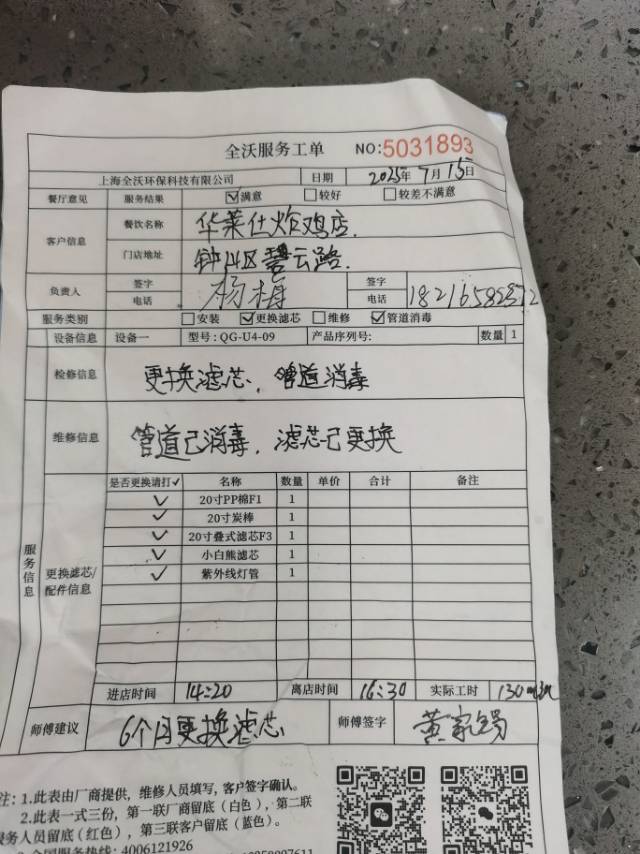 全沃服务工单 NO:5031893
上海全沃环保科技有限公司 日期 2025年7月15日
餐厅意见 服务结果 ☑满意 □较好 □较差不满意
客户信息 餐饮名称 华莱仕炸鸡店.
门店地址 钟山区碧云路.
负责人 签字 杨梅 签字
电话 电话 18216582872
服务类别 □安装 ☑更换滤芯 □维修 ☑管道消毒
设备信息 设备一 型号: QG-U4-09 产品序列号: 数量 1
检修信息 更换滤芯, 管道消毒
维修信息 管道已消毒, 滤芯已更换
服务信息
更换滤芯/配件信息
是否更换请打✓ 名称 数量 单价 合计 备注
✓ 20寸PP棉F1 1
✓ 20寸炭棒 1
✓ 20寸叠式滤芯F3 1
✓ 小白熊滤芯 1
✓ 紫外线灯管 1
进店时间 14:20 离店时间 16:30 实际工时 130
师傅建议 6个月更换滤芯 师傅签字 黄家锡
注: 1.此表由厂商提供, 维修人员填写, 客户签字确认。
2.此表一式三份, 第一联厂商留底(白色), 第二联
服务人员留底(红色), 第三联客户留底(蓝色)。
全国服务热线: 4006121926